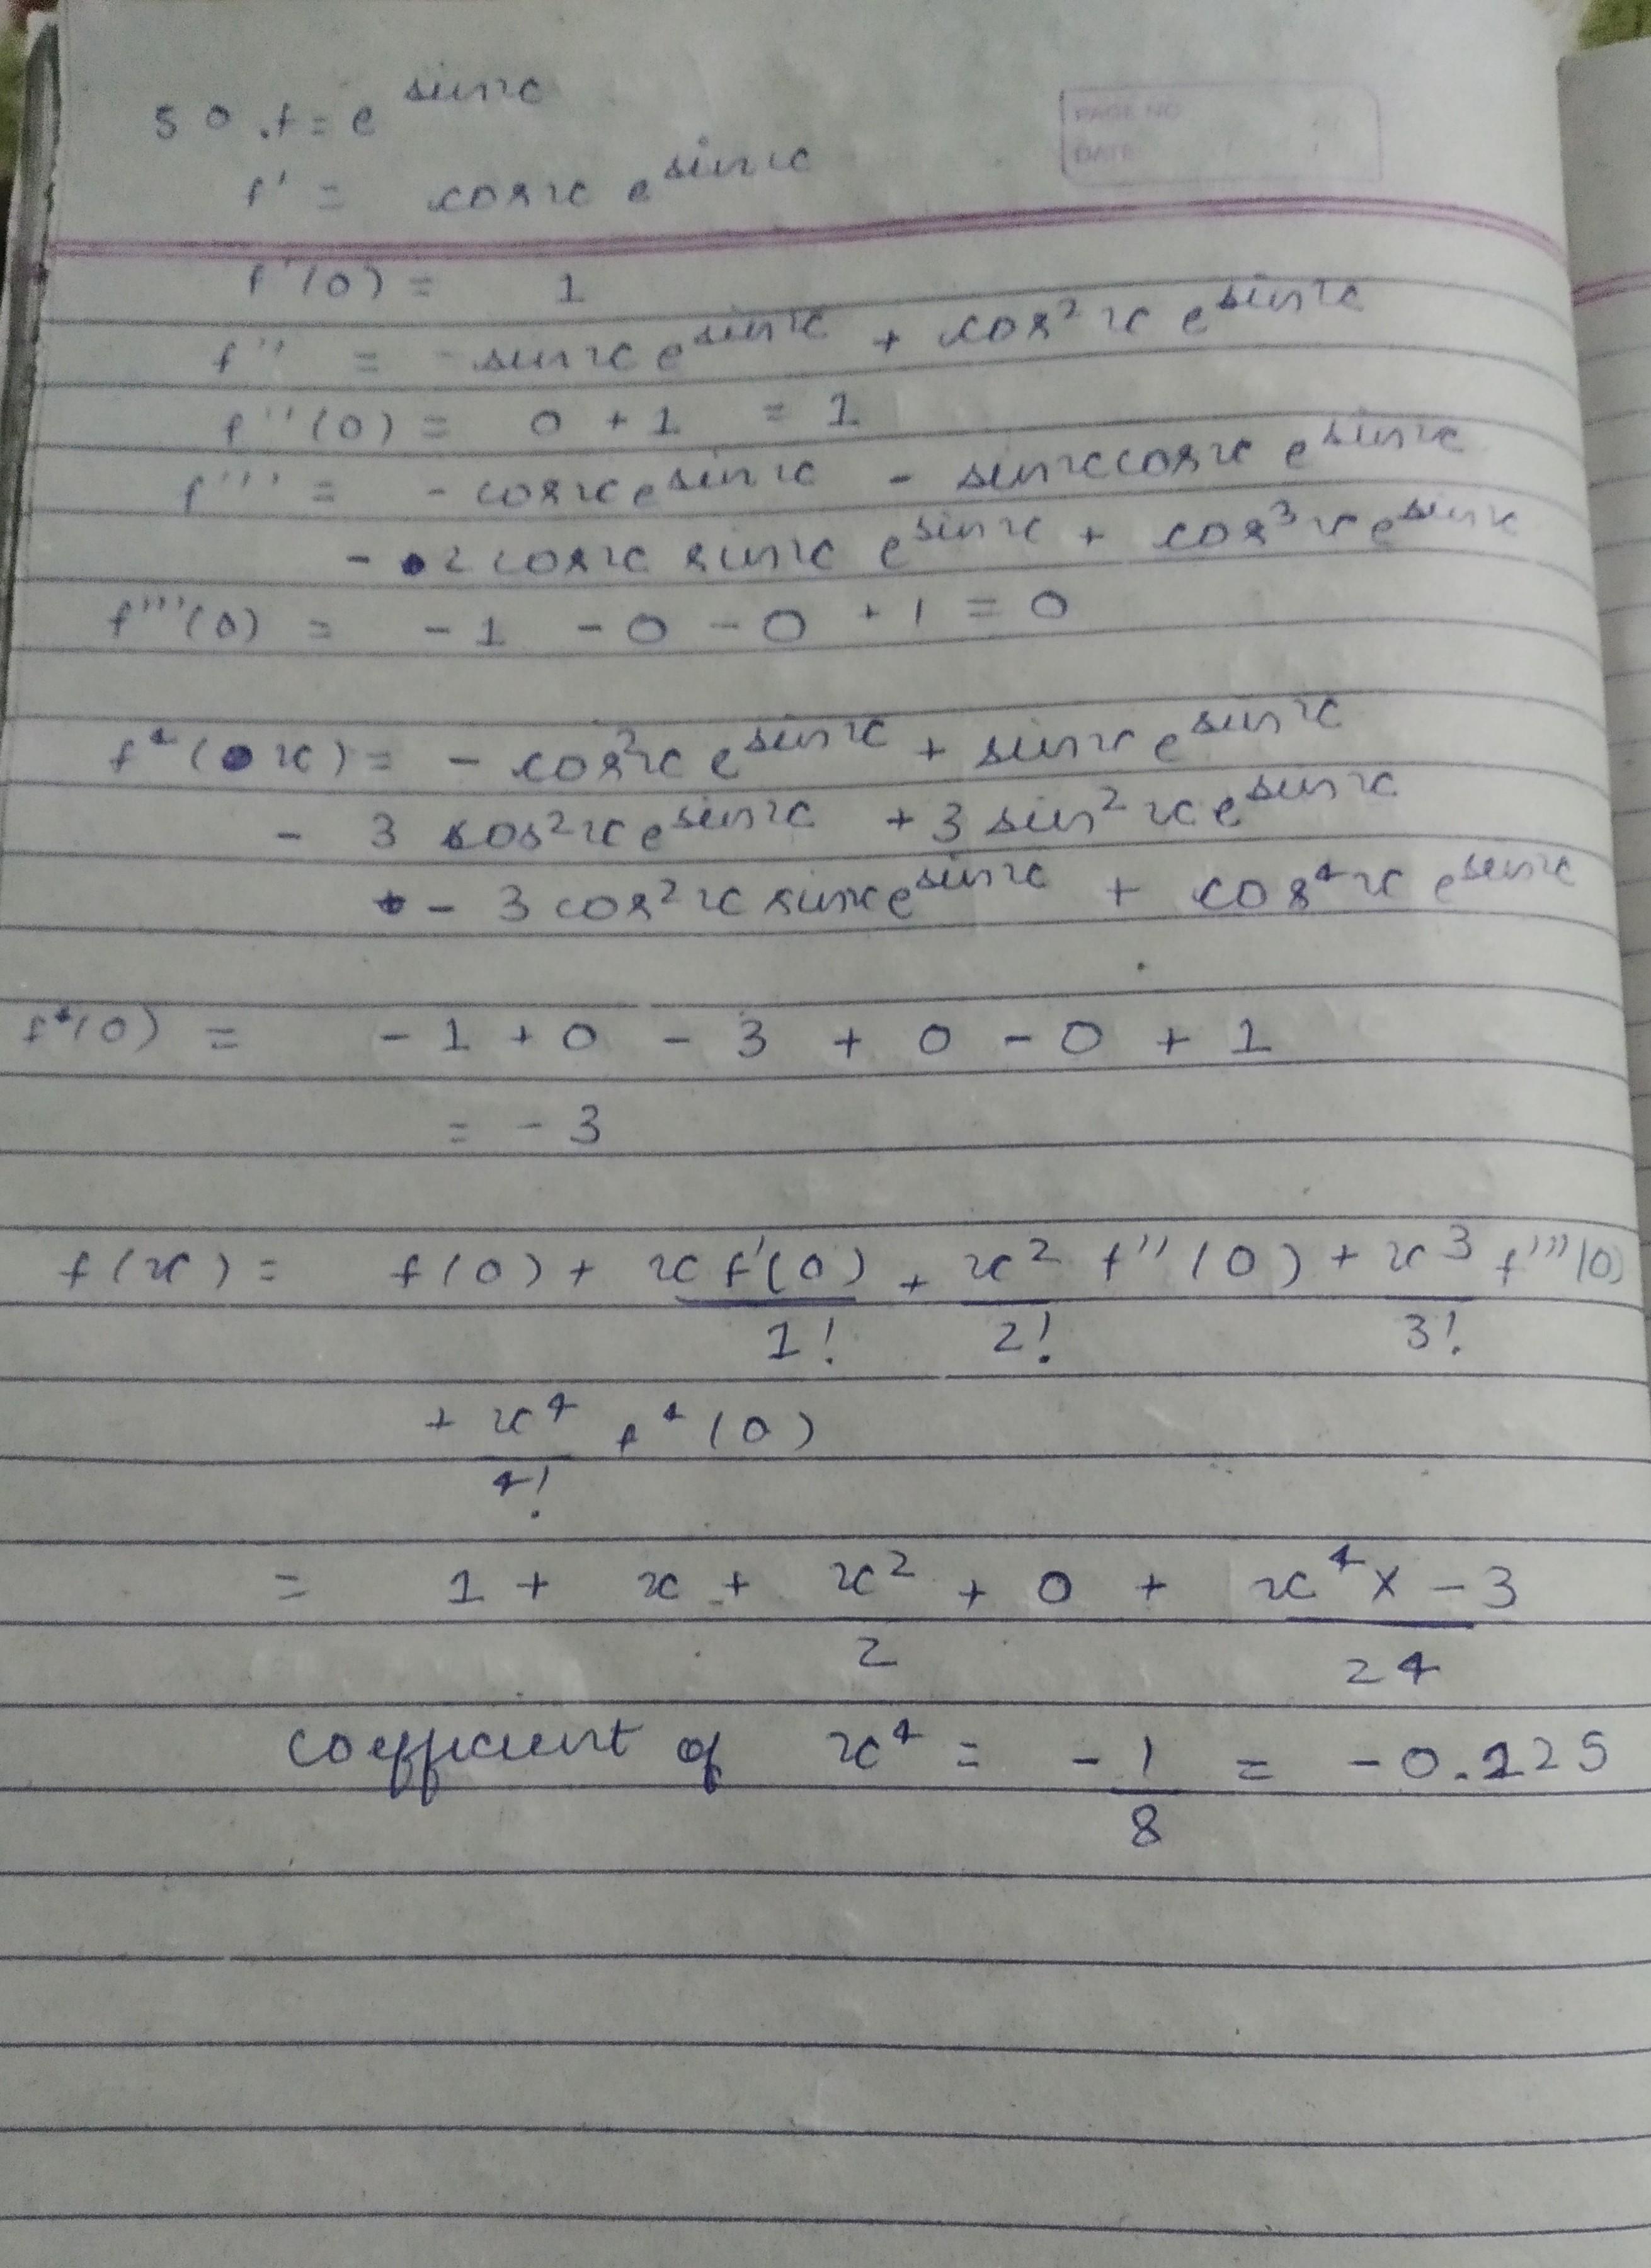 50. f = e^sinx
PAGE NO
DATE
f' = cosx e^sinx
f'(0) = 1
f'' = - sinx e^sinx + cos²x e^sinx
f''(0) = 0 + 1 = 1
f''' = - cosx e^sinx - sinxcosx e^sinx
- 2 cosx sinx e^sinx + cos³x e^sinx
f'''(0) = - 1 - 0 - 0 + 1 = 0
f⁴(x) = - cos²x e^sinx + sinx e^sinx
- 3 cos²x e^sinx + 3 sin²x e^sinx
- 3 cos²x sinx e^sinx + cos⁴x e^sinx
f⁴(0) = - 1 + 0 - 3 + 0 - 0 + 1
= - 3
f(x) = f(0) + x f'(0)/1! + x²/2! f''(0) + x³/3! f'''(0)
+ x⁴/4! f⁴(0)
= 1 + x + x²/2 + 0 + x⁴ x - 3/24
coefficient of x⁴ = - 1/8 = - 0.125